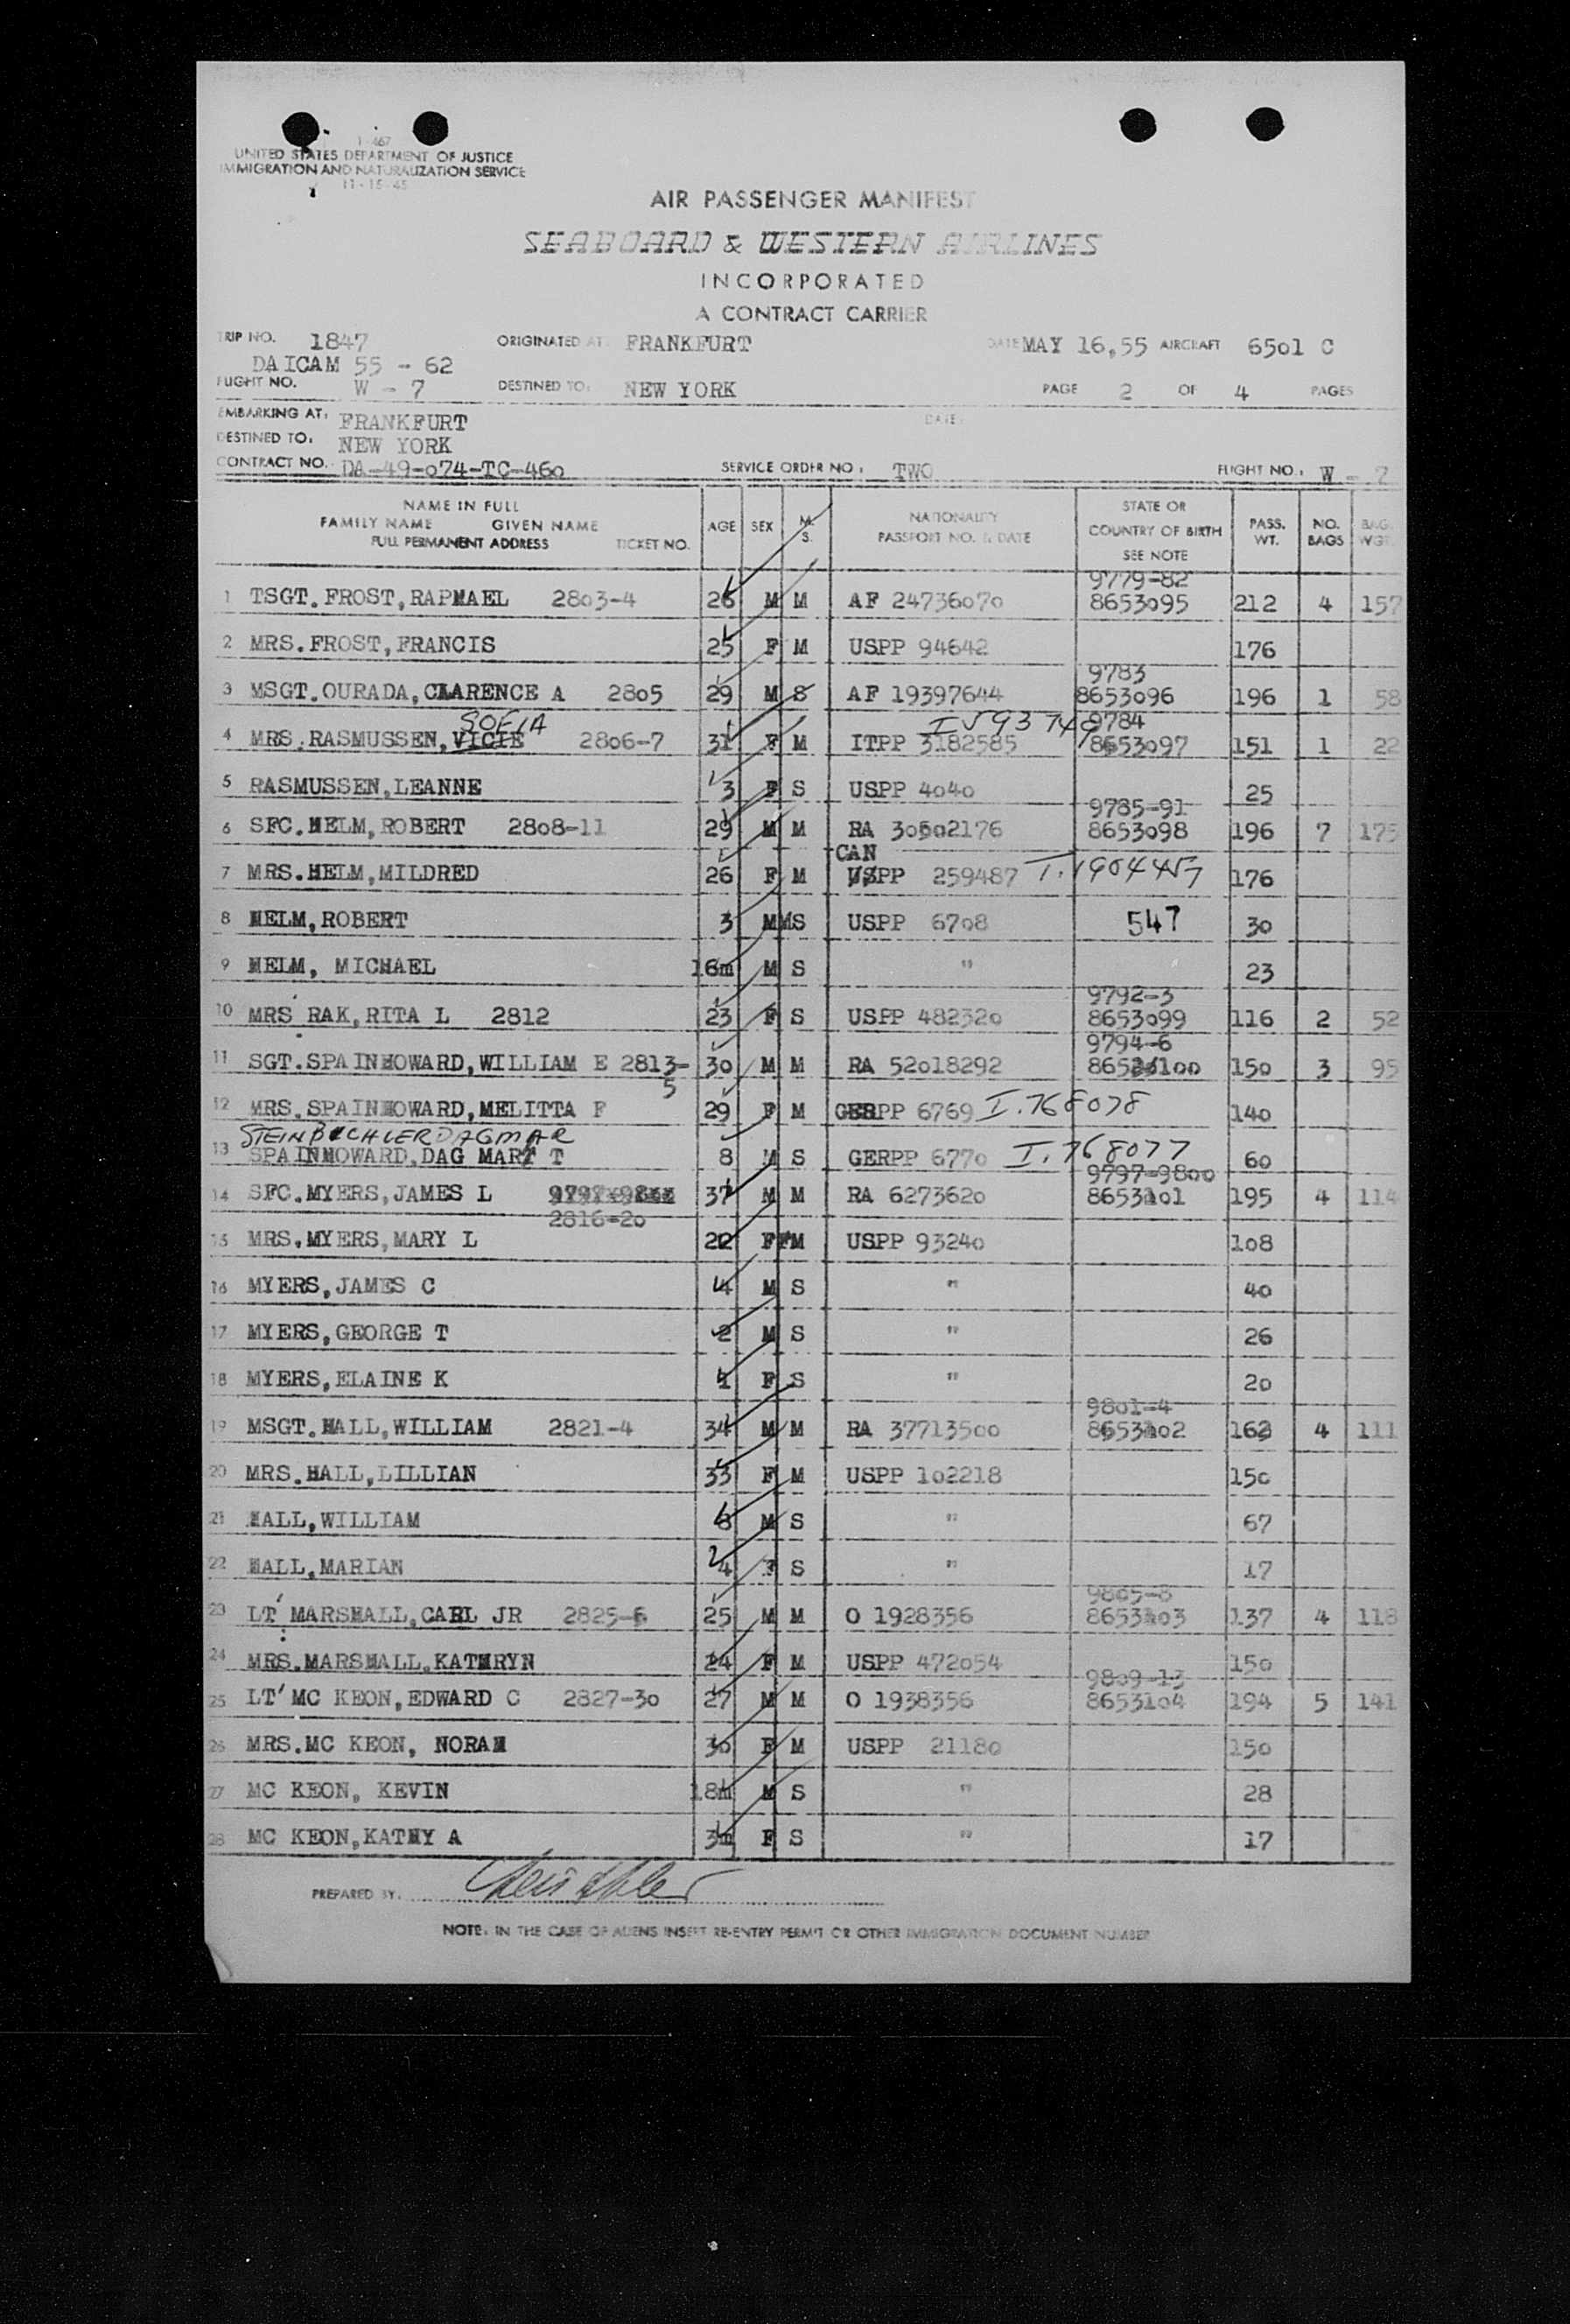 I-467
UNITED STATES DEPARTMENT OF JUSTICE
IMMIGRATION AND NATURALIZATION SERVICE
11-15-45
AIR PASSENGER MANIFEST
SEABOARD & WESTERN AIRLINES
INCORPORATED
A CONTRACT CARRIER
TRIP NO. 1847 ORIGINATED AT: FRANKFURT DATE MAY 16,55 AIRCRAFT 6501 C
DAICAM 55 - 62
FLIGHT NO. W - 7 DESTINED TO: NEW YORK PAGE 2 OF 4 PAGES
EMBARKING AT: FRANKFURT DATE:
DESTINED TO: NEW YORK
CONTRACT NO. DA-49-074-TC-460 SERVICE ORDER NO: TWO FLIGHT NO.: W - 7
NAME IN FULL
FAMILY NAME GIVEN NAME
FULL PERMANENT ADDRESS TICKET NO. AGE SEX M. S. NATIONALITY PASSPORT NO. & DATE STATE OR COUNTRY OF BIRTH SEE NOTE PASS. WT. NO. BAGS BAG. WGT.
9779-82
1 TSGT.FROST,RAPHAEL 2803-4 26 M M AF 24736070 8653095 212 4 157
2 MRS.FROST,FRANCIS 25 F M USPP 94642 176
9783
3 MSGT.OURADA,CLARENCE A 2805 29 M S AF 19397644 8653096 196 1 58
SOFIA 9784
4 MRS.RASMUSSEN,VICIE 2806-7 31 F M ITPP 3182585 8653097 151 1 22
5 RASMUSSEN,LEANNE 3 F S USPP 4040 25
9785-91
6 SFC.HELM,ROBERT 2808-11 29 M M RA 30502176 8653098 196 7 175
CAN
7 MRS.HELM,MILDRED 26 F M USPP 259487 176
8 HELM,ROBERT 3 M S USPP 6708 547 30
9 HELM, MICHAEL 16m M S " 23
9792-3
10 MRS RAK,RITA L 2812 23 F S USPP 482320 8653099 116 2 52
9794-6
11 SGT.SPAINHOWARD,WILLIAM E 2813-5 30 M M RA 52018292 8653100 150 3 95
12 MRS.SPAINHOWARD,MELITTA F 29 F M GERPP 6769 I.768078 140
STEINBUCHLER DAGMAR
13 SPAINHOWARD,DAG MART T 8 M S GERPP 6770 I.768077 60
9797-9800
14 SFC.MYERS,JAMES L 37 M M RA 6273620 8653101 195 4 114
2816-20
15 MRS.MYERS,MARY L 22 F M USPP 93240 108
16 MYERS,JAMES C 4 M S " 40
17 MYERS,GEORGE T 2 M S " 26
18 MYERS,ELAINE K 1 F S " 20
9801-4
19 MSGT.HALL,WILLIAM 2821-4 34 M M RA 37713500 8653102 162 4 111
20 MRS.HALL,LILLIAN 33 F M USPP 102218 150
21 HALL,WILLIAM 6 M S " 67
22 HALL,MARIAN 2 F S " 17
9805-8
23 LT MARSHALL,CARL JR 2825-6 25 M M O 1928356 8653103 137 4 118
24 MRS.MARSHALL,KATHRYN 24 F M USPP 472054 150
9809-13
25 LT MC KEON,EDWARD C 2827-30 27 M M O 1938356 8653104 194 5 141
26 MRS.MC KEON, NORAH 30 F M USPP 21180 150
27 MC KEON, KEVIN 18m M S " 28
28 MC KEON,KATHY A 3m F S " 17
PREPARED BY.
NOTE: IN THE CASE OF ALIENS INSERT RE-ENTRY PERMIT OR OTHER IMMIGRATION DOCUMENT NUMBER